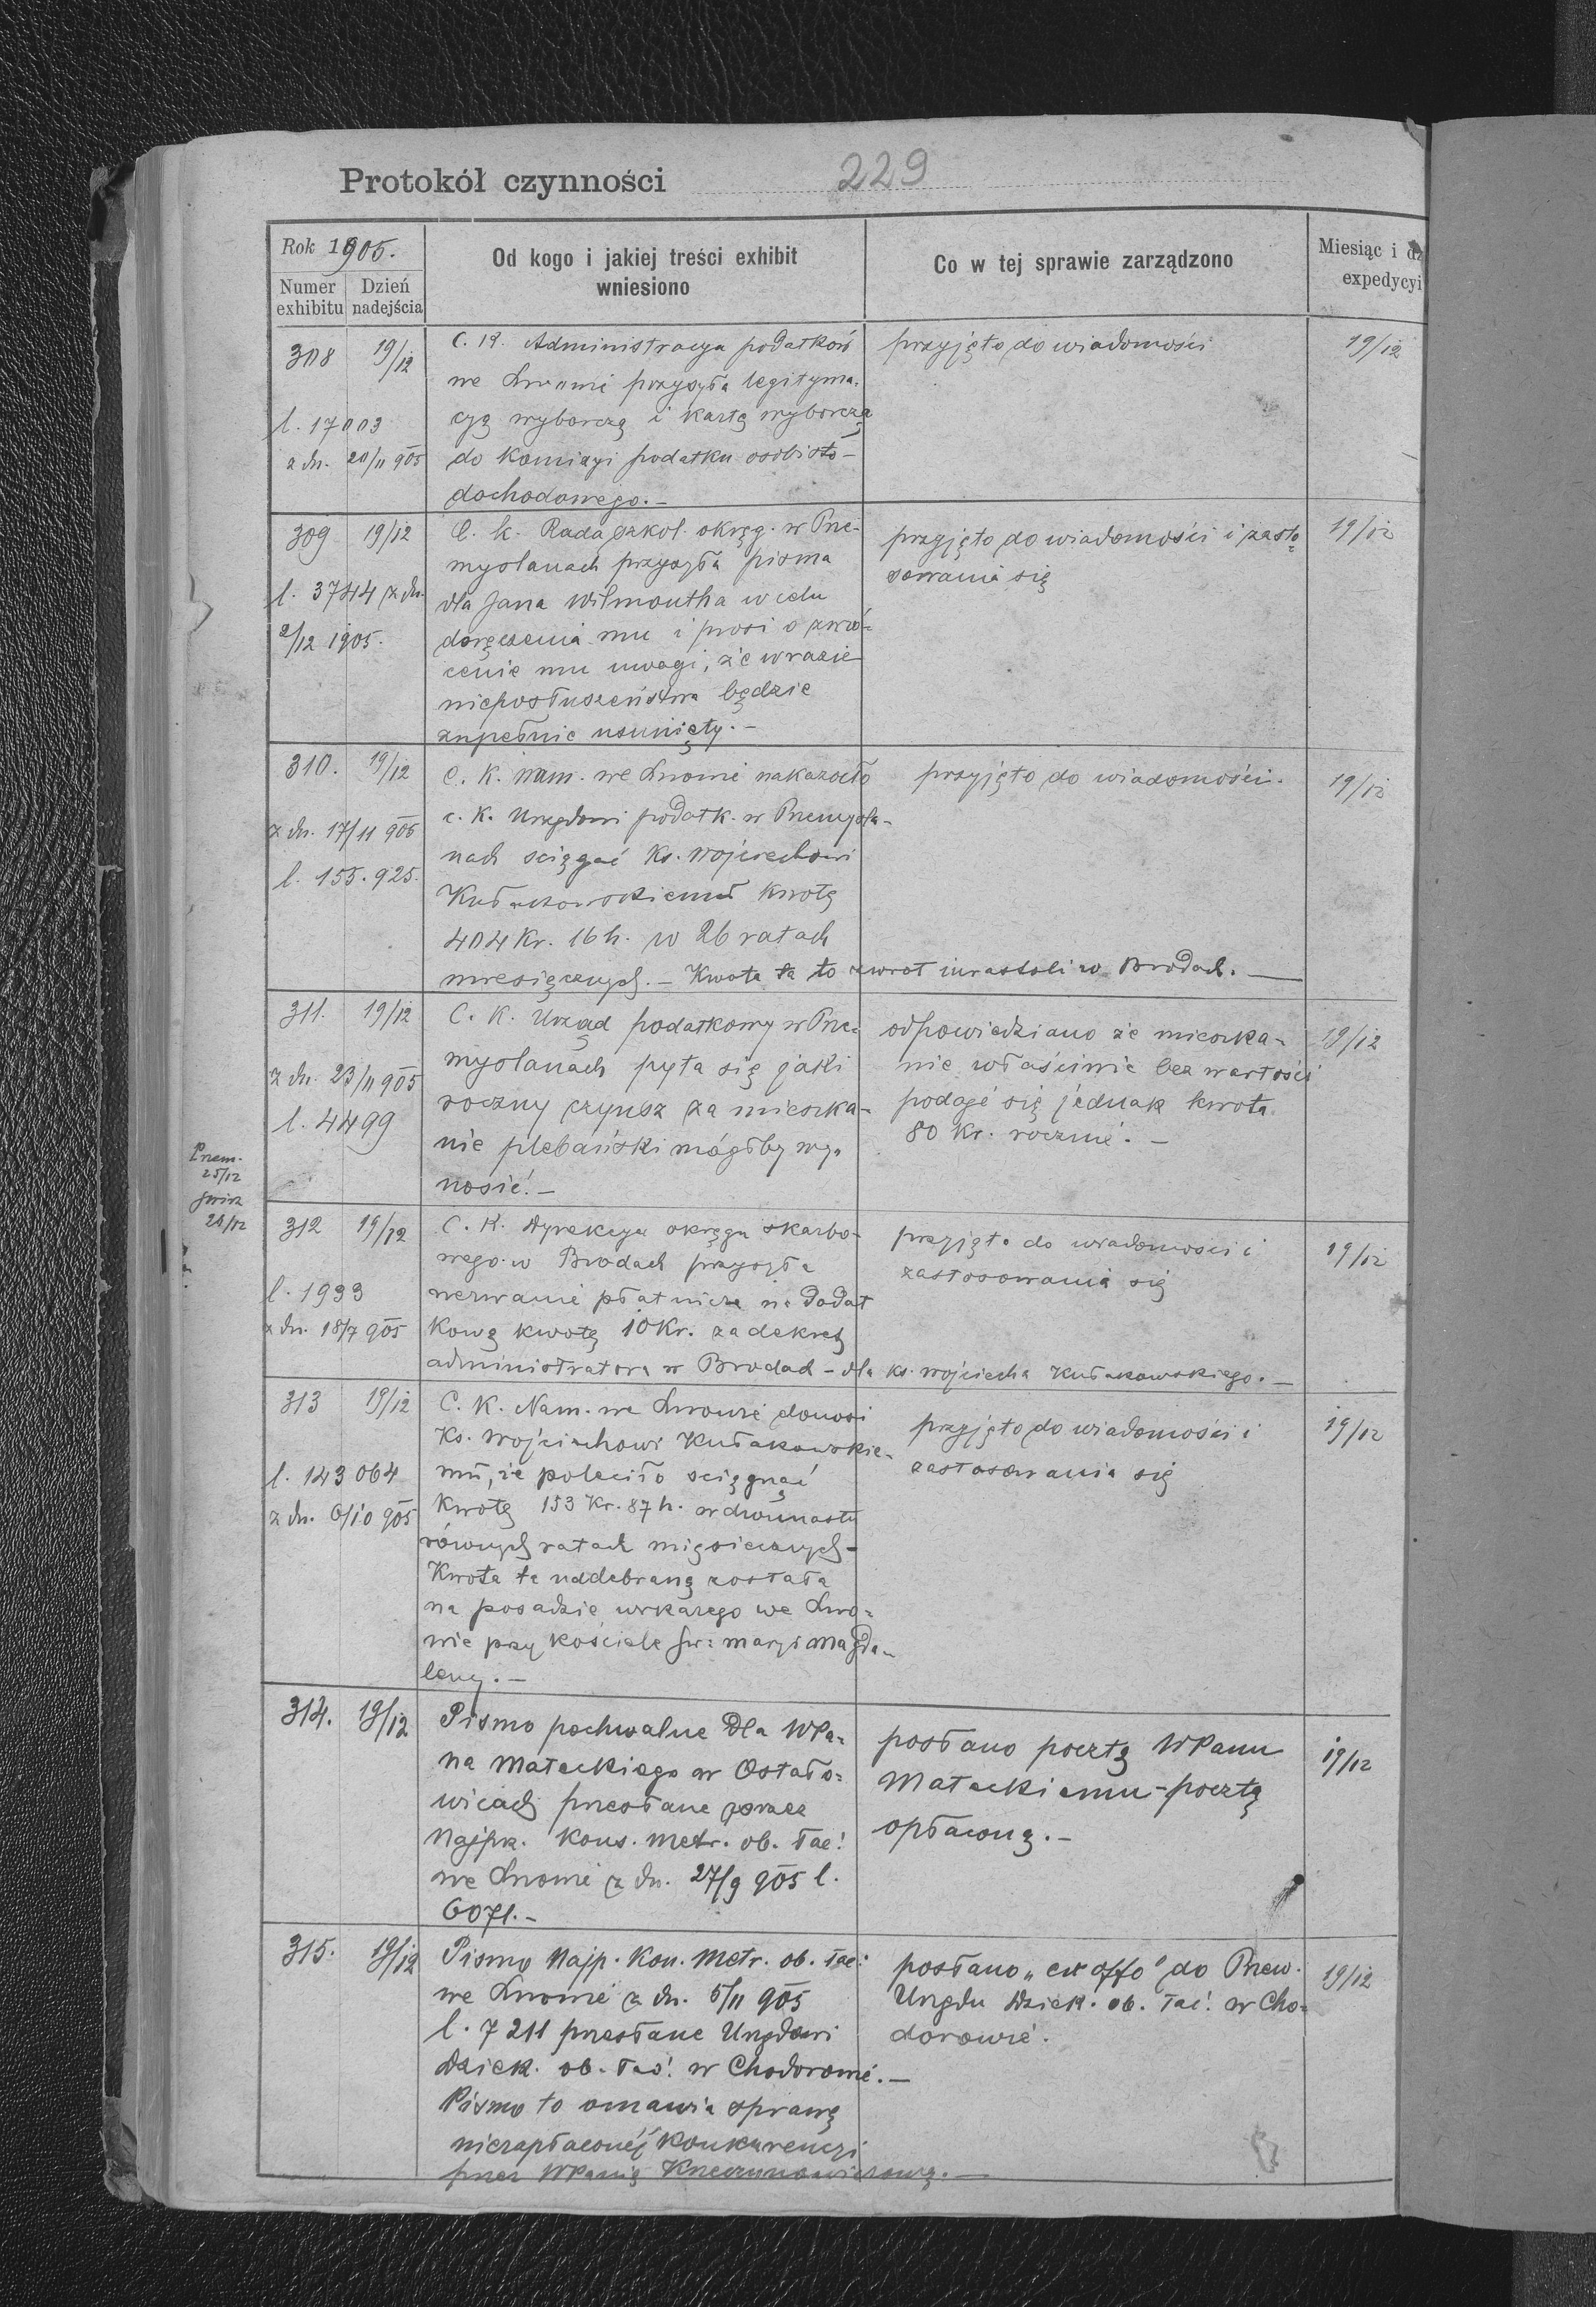 Protokół czynności 229
Rok 1905.
Numer exhibitu
Dzień nadejścia
Od kogo i jakiej treści exhibit
wniesiono
Co w tej sprawie zarządzono
Miesiąc i dz
expedycyi
308 19/12
l. 17003
z dn. 20/11 905
C. K. Administracya podatków
we Lwowie przysyła legityma-
cyą wyborczą i kartę wyborczą
do Komisyi podatku osobisto-
dochodowego. –
przyjęto do wiadomości
19/12
309 19/12
l. 3744 z dn.
2/12 1905.
C. k. Rada szkol. okręg. w Prze-
myślanach przysyła pisma
dla Jana Wilmoutha w celu
doręczenia mu i prosi o zwró-
cenie mu uwagi, że w razie
nieposłuszeństwa będzie
zupełnie usunięty. –
przyjęto do wiadomości i zasto-
sowania się
19/12
310. 19/12
z dn. 17/11 905
l. 155.925.
C. K. Nam. we Lwowie nakazało
c. K. Urzędowi podatk. w Przemyśla-
nach ściągać Ks. Wojciechowi
Kułakowskiemu kwotę
404 Kr. 16 h. w 26 ratach
miesięcznych. – Kwota ta to zwrot w Brodach. –
przyjęto do wiadomości.
19/12
311. 19/12
z dn. 23/11 905
l. 4499
C. K. Urząd podatkowy w Prze-
myślanach pyta się jaki
roczny czynsz za mieszka-
nie plebański mógłby wy-
nosić. –
odpowiedziano że mieszka-
nie właściwie bez wartości
podaje się jednak kwota
80 Kr. rocznie. –
19/12
Przem.
25/12
24/12
312 19/12
l. 1933
z dn. 18/7 905
C. K. Dyrekcya okręgu skarbo-
wego w Brodach przysyła
wezwanie płatnicze na dodat
kową kwotę 10 Kr. za dekret
administratora w Brodach – dla ks. Wojciecha Kułakowskiego. –
przyjęto do wiadomości i
zastosowania się
19/12
313 19/12
l. 143064
z dn. 6/10 905
C. K. Nam. we Lwowie donosi
Ks. Wojciechowi Kułakowskie-
mu, że poleciło ściągnąć
Kwotę 153 Kr. 87 h. w dwunastu
równych ratach miesięcznych –
Kwota ta nadebraną została
na posadzie wikarego we Lwo-
wie przy kościele św. Maryi Magda-
leny. –
przyjęto do wiadomości i
zastosowania się
19/12
314. 19/12
Pismo pochwalne dla WPa-
na Małeckiego w Ostało-
wicach przesłane przez
Najprz. Kons. metr. ob. łac.
we Lwowie z dn. 27/9 905 l.
6071. –
posłano pocztą WPanu
Małeckiemu – pocztą
opłaconą. –
19/12
315. 19/12
Pismo Najp. Kon. Metr. ob. łac.
we Lwowie z dn. 5/11 905
l. 7211 przesłane Urzędowi
Dziek. ob. łac. w Chodorowie. –
Pismo to omawia sprawę
niezapłaconej konkurencyi
przez WPanią
posłano „ex offo” do Przew.
Urzędu Dziek. ob. łac. w Cho-
dorowie.
19/12